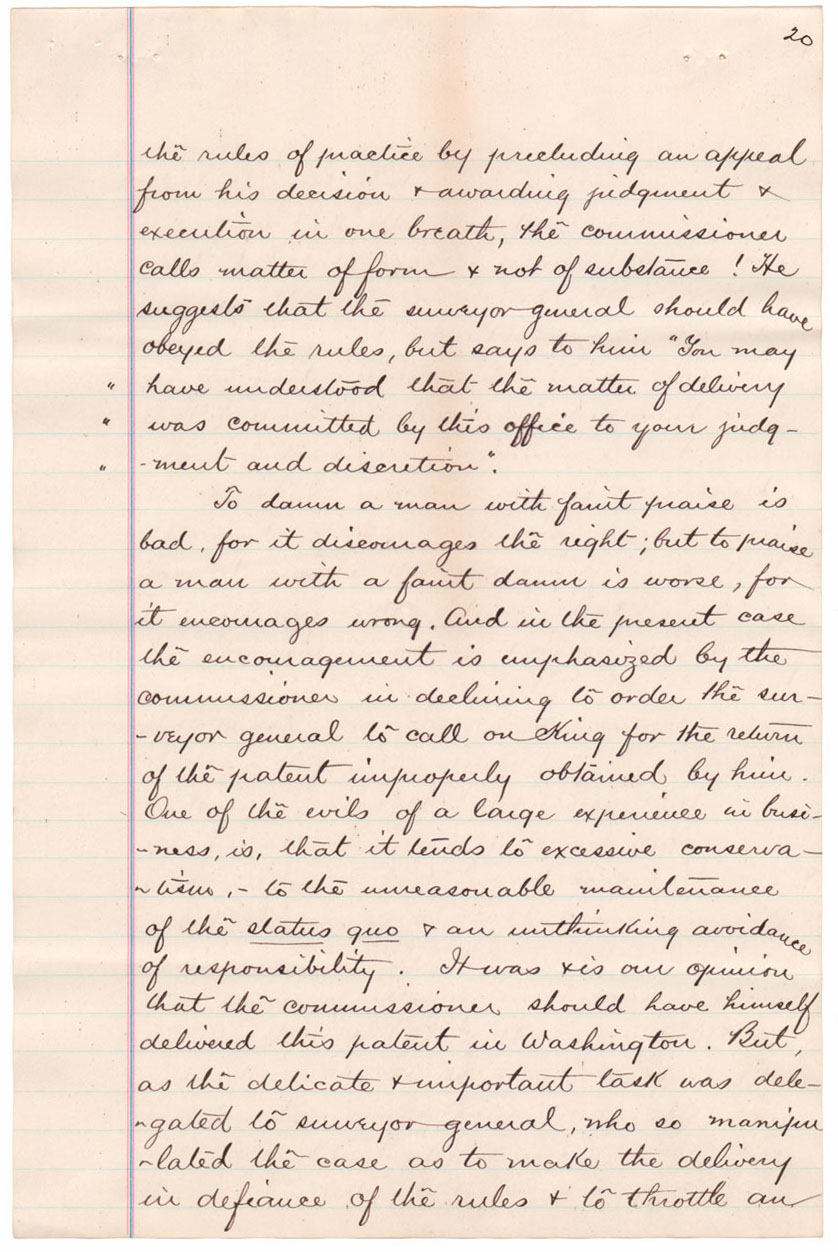 20
the rules of practice by precluding an appeal
from his decision & awarding judgment &
execution in one breath, the commissioner
calls matter of form & not of substance! He
suggests that the surveyor general should have
obeyed the rules, but says to him "You may
" have understood that the matter of delivery
" was committed by this office to your judg-
" -ment and discretion".
To damn a man with faint praise is
bad, for it discourages the right; but to praise
a man with a faint damn is worse, for
it encourages wrong. And in the present case
the encouragement is emphasized by the
commissioner in declining to order the sur-
-veyor general to call on King for the return
of the patent improperly obtained by him.
One of the evils of a large experience in busi-
-ness, is, that it tends to excessive conserva-
-tism, - to the unreasonable maintenance
of the status quo & an unthinking avoidance
of responsibility. It was & is our opinion
that the commissioner should have himself
delivered this patent in Washington. But,
as the delicate & important task was dele-
-gated to surveyor general, who so manipu
-lated the case as to make the delivery
in defiance of the rules & to throttle an